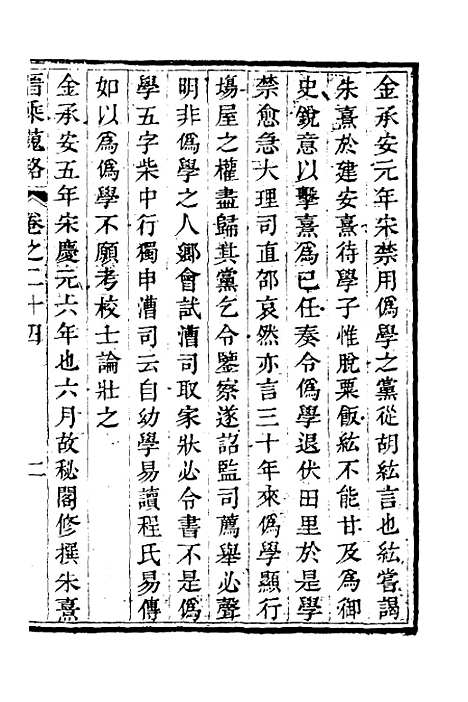 金承安元年宋禁用僞學之黨從胡紘言也紘嘗謁
朱熹於建安熹待學子惟脫粟飯紘不能甘及爲御
史銳意以擊熹爲已任奏令僞學退伏田里於是學
禁愈急大理司直邵裒然亦言三十年來僞學顯行
塲屋之權盡歸其黨乞令鑒察遂詔監司薦舉必聲
明非僞學之人鄉會試漕司取家狀必令書不是僞
學五字柴中行獨申漕司云自幼學易讀程氏易傳
如以爲僞學不願考校士論壯之
金承安五年宋慶元六年也六月故秘閣修撰朱熹
晉乘蒐略 卷之二十四 二